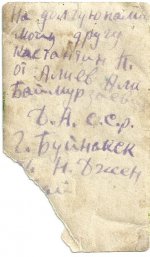 На долгую памя
моему другу
Костантин П.
от Алиев Али
Баймурзаев
Д. А. С.С.Р.
г. Буйнакск
Н. Джен